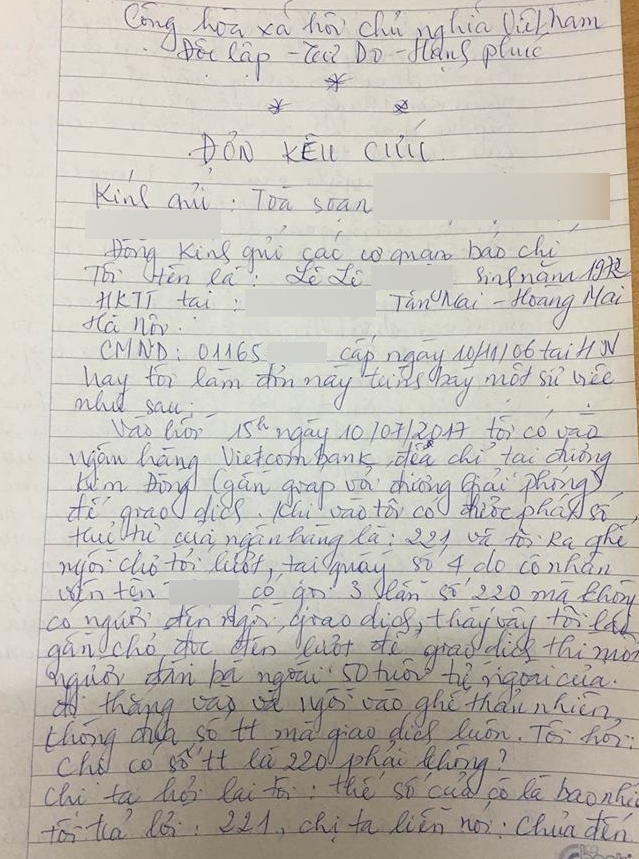 Cộng hòa xã hội chủ nghĩa Việt Nam
Độc lập - Tự Do - Hạnh phúc
ĐƠN KÊU CỨU
Kính gửi : Toà soạn
Đồng Kính gửi các cơ quan báo chí
Tôi tên là : Lê Lê sinh năm 1972
HKTT tại : Tân Mai - Hoàng Mai
Hà Nội.
CMND : 01165 cấp ngày 10/11/06 tại HN
Nay tôi làm đơn này trình bày một sự việc
như sau:
Vào hồi 15h ngày 10/07/2017 tôi có vào
ngân hàng Vietcombank, địa chỉ tại đường
Kim Đồng (gần grap với đường giải phóng)
để giao dịch. Khi vào tôi có được phát số
thứ tự của ngân hàng là : 221 và tôi ra ghế
ngồi chờ tới lượt, tại quầy số 4 do cô nhân
viên tên có gọi 3 lần số 220 mà không
có người đến ngồi giao dịch, thấy vậy tôi lại
gần chờ đến lượt để giao dịch thì một
người đàn bà ngoài 50 tuổi từ ngoài cửa
đi thẳng vào và ngồi vào ghế thản nhiên
không đưa số tt mà giao dịch luôn. Tôi hỏi:
Chị có số tt là 220 phải không?
Chị ta hỏi lại tôi : thế số của cô là bao nhiê
tôi trả lời : 221, chị ta liền nói : Chưa đến